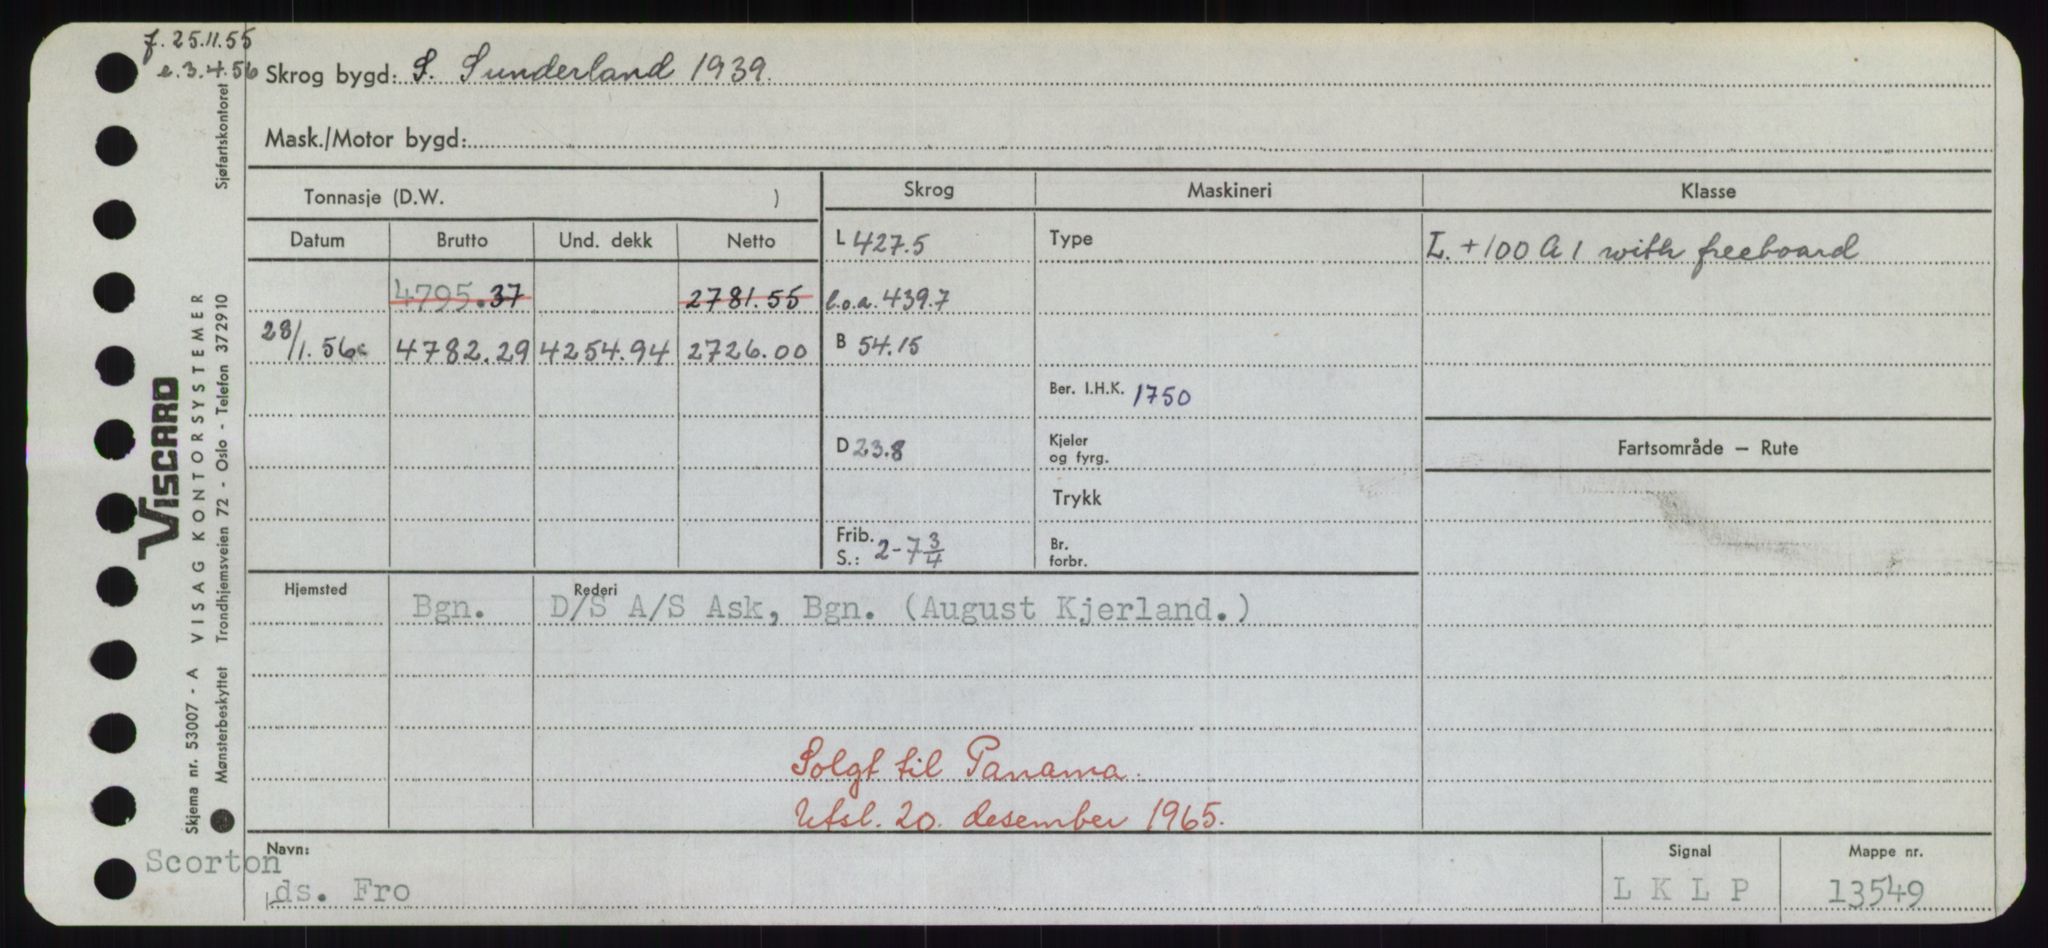 f. 25.11.55
e. 3.4.56
Skrog bygd: S. Sunderland 1939.
Mask./Motor bygd:
Tonnasje (D.W. )
Skrog
Maskineri
Klasse
Datum
Brutto
Und. dekk
Netto
L 427.5
Type
L. +100 A 1 with freeboard
4795.37
2781.55
l.o.a. 439.7
28/1.56
4782.29
4254.94
2726.00
B 54.15
Ber. I.H.K. 1750
D 23.8
Kjeler
og fyrg.
Fartsområde – Rute
Trykk
Frib.
S.: 2-7 3/4
Br.
forbr.
Hjemsted
Rederi
Bgn.
D/S A/S Ask, Bgn. (August Kjerland.)
Solgt til Panama.
Utsl. 20. desember 1965.
Navn:
Scorton
ds. Fro
Signal
L K L P
Mappe nr.
13549
VISCARD
Skjema nr. 53007 - A VISAG KONTORSYSTEMER
Mønsterbeskyttet Trondhjemsveien 72 - Oslo - Telefon 372910
Sjøfartskontoret